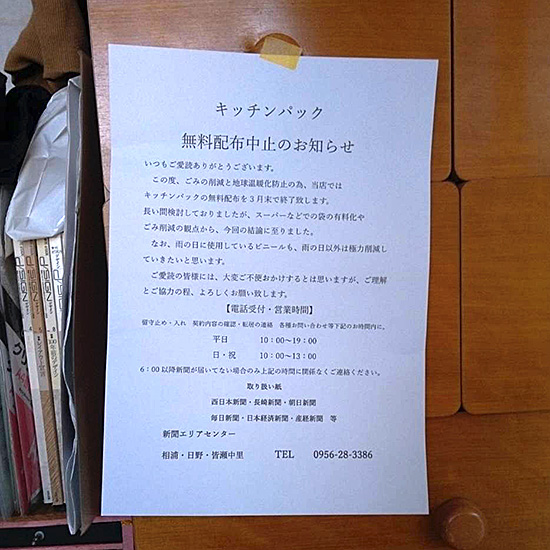 キッチンパック
無料配布中止のお知らせ
いつもご愛読ありがとうございます。
この度、ごみの削減と地球温暖化防止の為、当店では
キッチンパックの無料配布を３月末で終了致します。
長い間検討しておりましたが、スーパーなどでの袋の有料化や
ごみ削減の観点から、今回の結論に至りました。
なお、雨の日に使用しているビニールも、雨の日以外は極力削減し
ていきたいと思います。
ご愛読の皆様には、大変ご不便おかけするとは思いますが、ご理解
とご協力の程、よろしくお願い致します。
【電話受付・営業時間】
留守止め・入れ　契約内容の確認・転居の連絡　各種お問い合わせ等下記のお時間内に、
平日　10：00～19：00
日・祝　10：00～13：00
6：00以降新聞が届いてない場合のみ上記の時間に関係なくご連絡ください。
取り扱い紙
西日本新聞・長崎新聞・朝日新聞
毎日新聞・日本経済新聞・産経新聞　等
新聞エリアセンター
相浦・日野・皆瀬中里　TEL　0956-28-3386